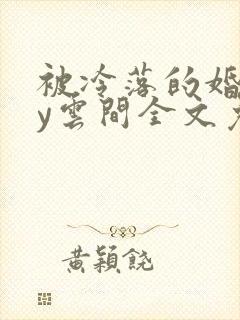 被冷落的婚
y雲間全文
黃穎饒